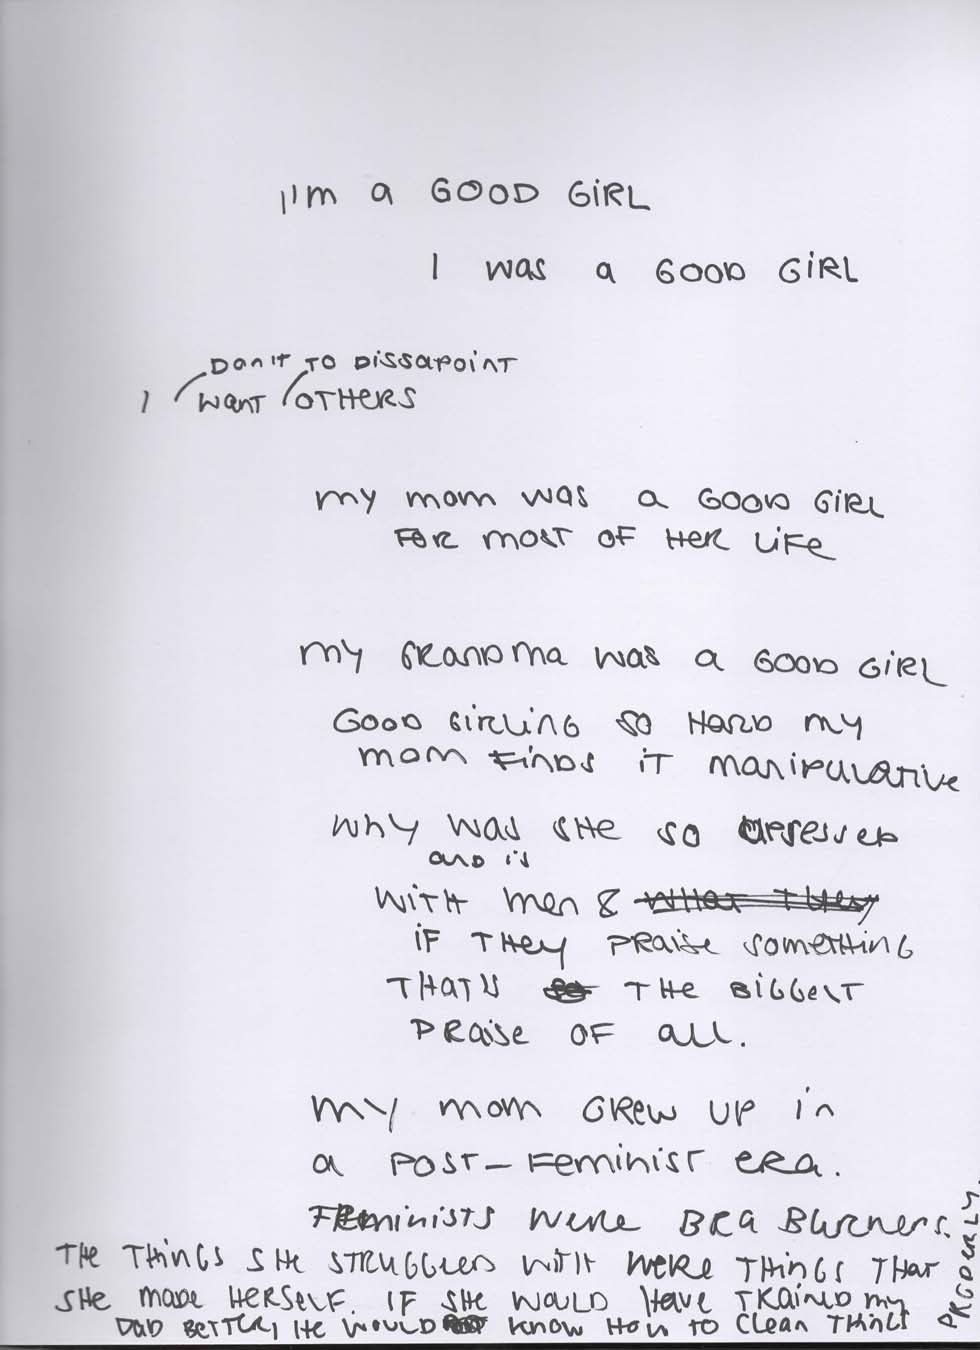 I'm a GOOD GIRL
I was a GOOD GIRL
DON'T TO DISSAPOINT
I WANT OTHERS
my mom was a GOOD GIRL
FOR MOST OF HER LIFE
my GRANDMA was a GOOD GIRL
GOOD GIRLING SO HARD my
mom FINDS IT MANIPULATIVE
WHY WAS SHE SO
AND IS
WITH MEN &
IF THEY PRAISE SOMETHING
THAT'S THE BIGGEST
PRAISE OF ALL.
MY MOM GREW UP IN
a POST-FEMINIST ERA.
FEMINISTS WERE BRA BURNERS.
THE THINGS SHE STRUGGLED WITH WERE THINGS THAT
SHE MADE HERSELF. IF SHE WOULD HAVE TRAINED MY
DAD BETTER, HE WOULD KNOW HOW TO CLEAN THINGS
PROPERLY.